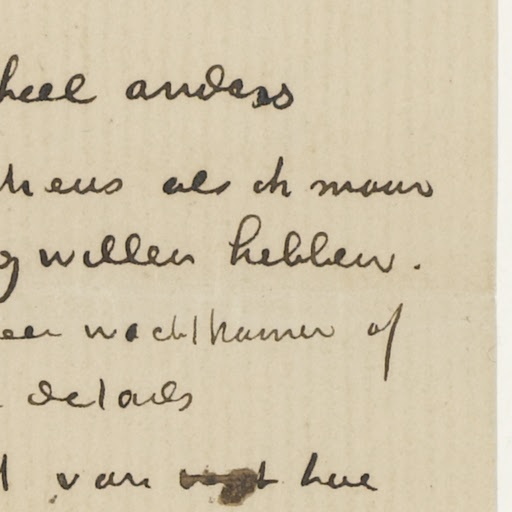 heel anders
heus als ik maar
g willen hebben.
een wachtkamer of
details
van hoe